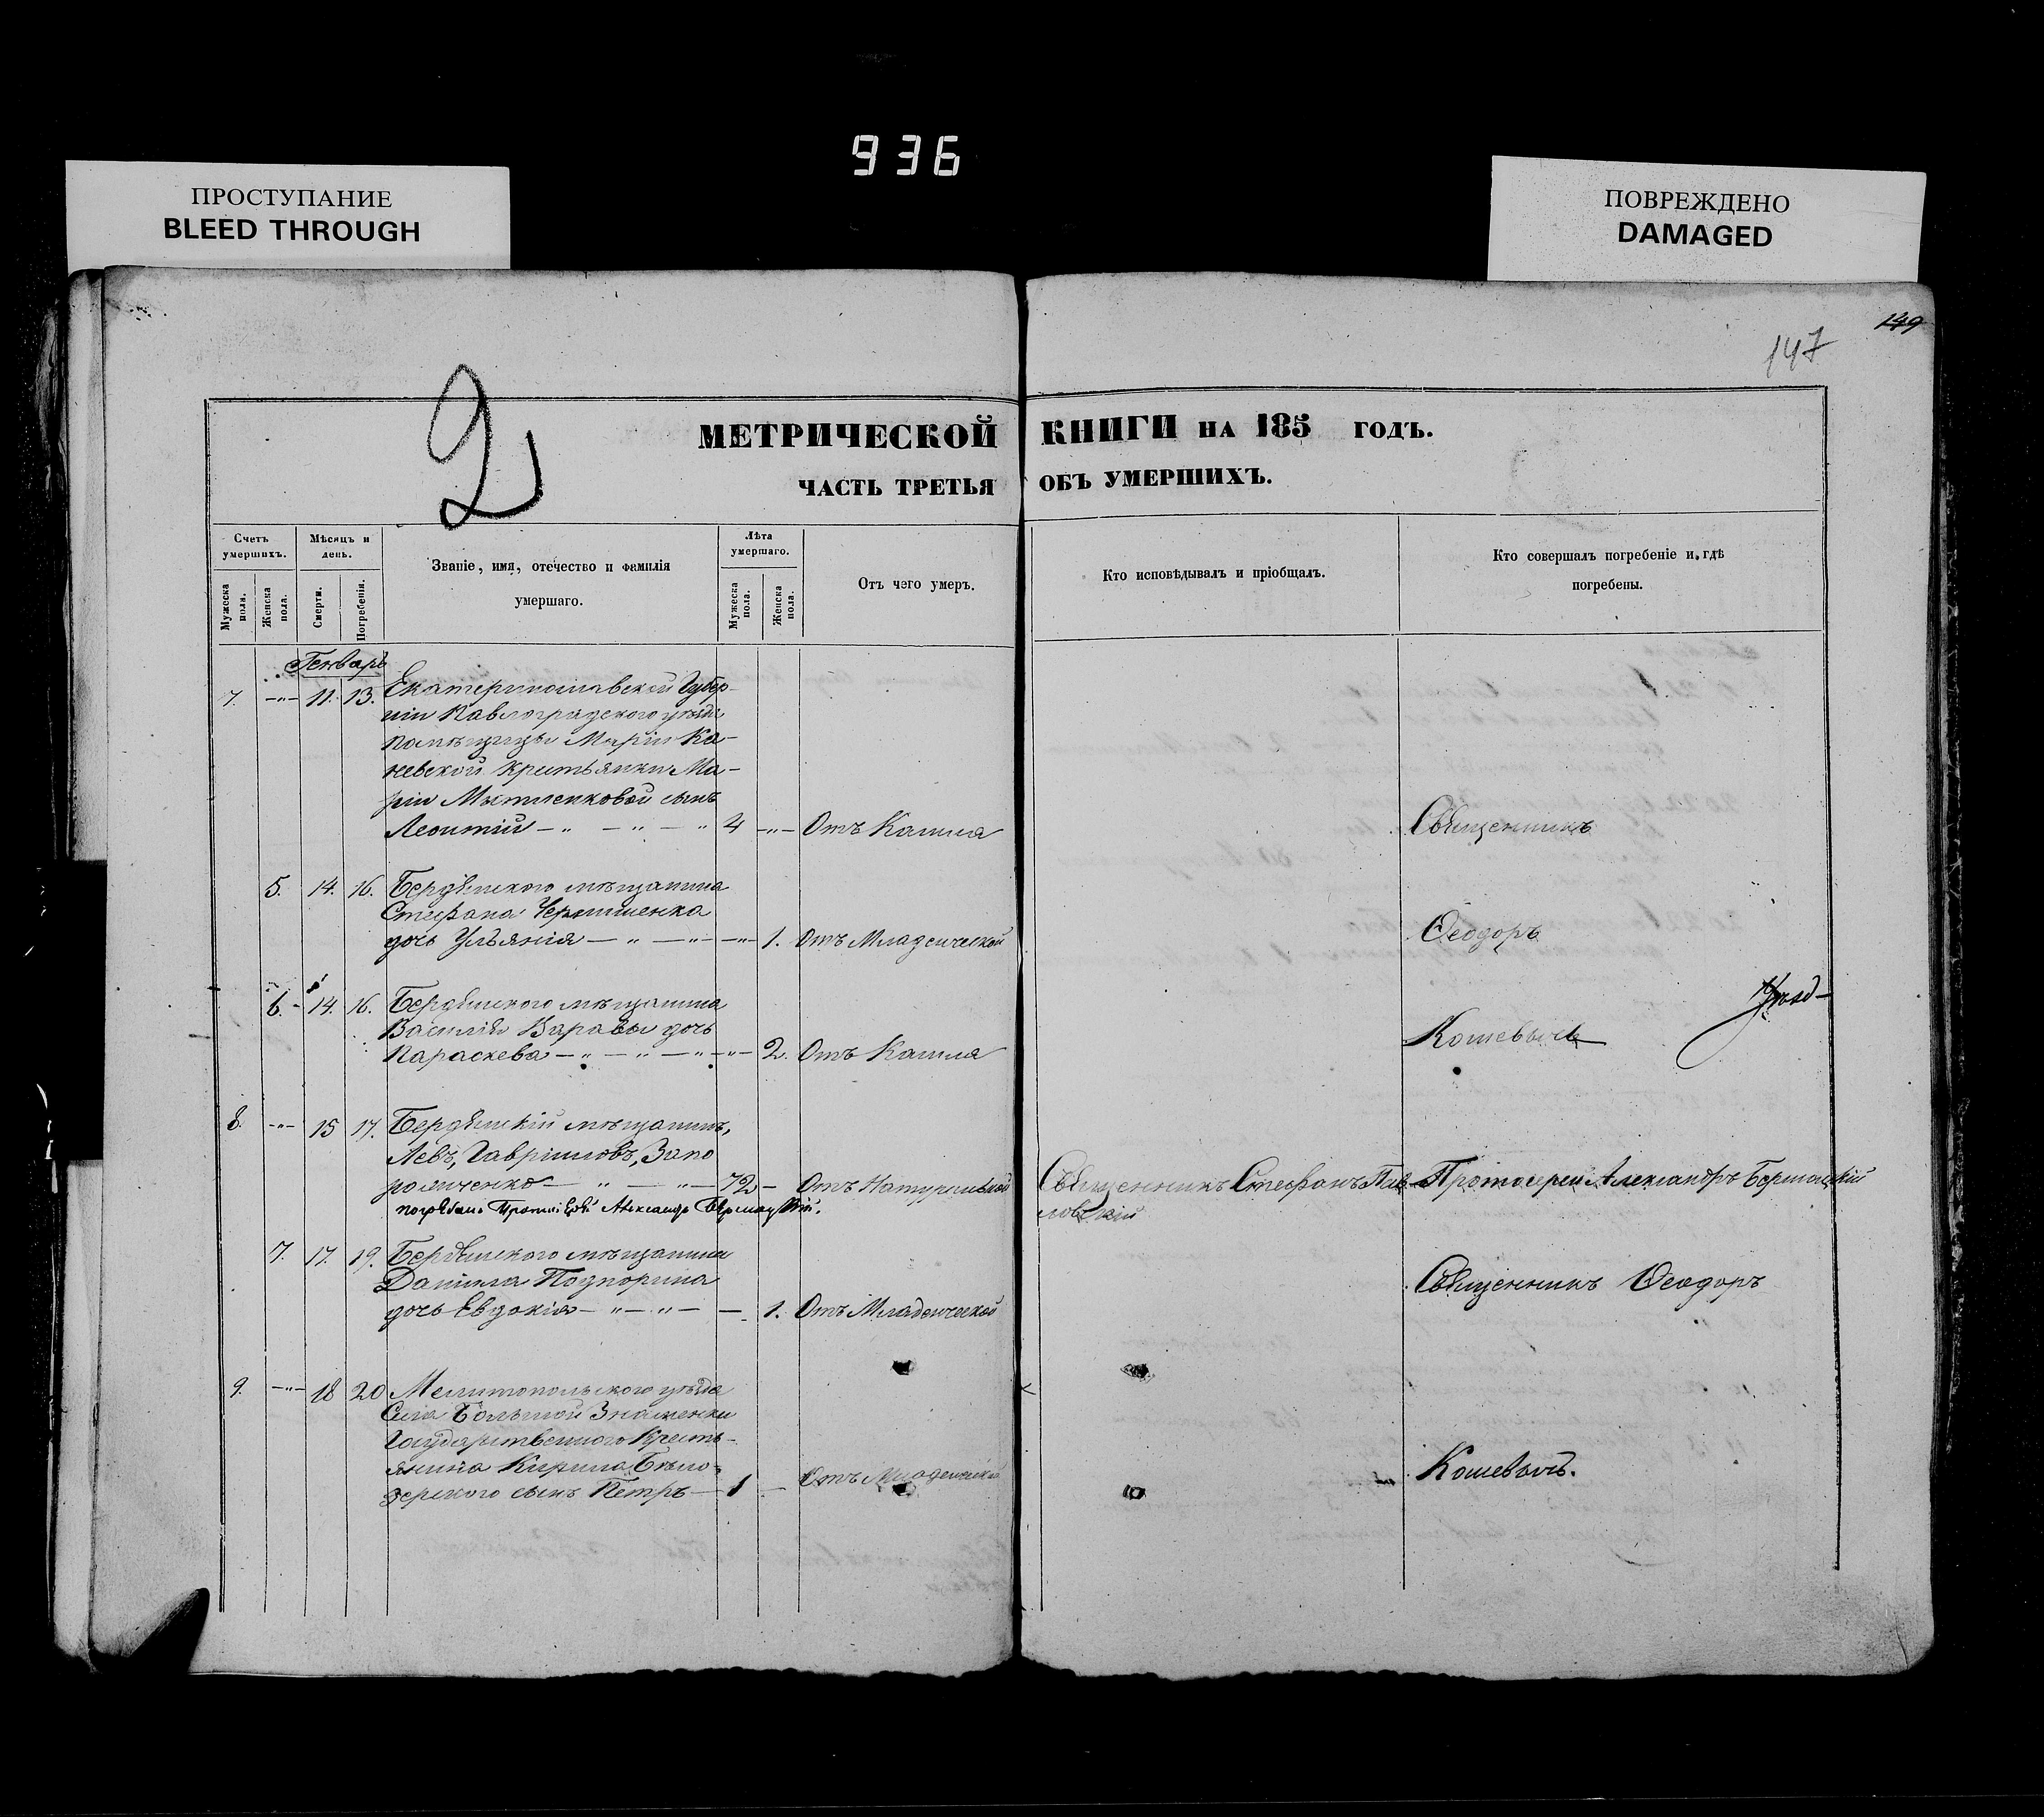 936
ПРОСТУПАНИЕ
BLEED THROUGH
ПОВРЕЖДЕНО
DAMAGED
149
147
2
МЕТРИЧЕСКОЙ КНИГИ НА 185 ГОДЪ.
ЧАСТЬ ТРЕТЬЯ ОБЪ УМЕРШИХЪ.
Счетъ умершихъ.
Мужеска пола.
Женска пола.
Мѣсяцъ и день.
Смерти.
Погребенія.
Званіе, имя, отечество и фамилія умершаго.
Лѣта умершаго.
Мужеска пола.
Женска пола.
Отъ чего умеръ.
Кто исповѣдывалъ и пріобщалъ.
Кто совершалъ погребеніе и гдѣ погребены.
Генварь
7. -"- 11. 13. Екатеринославской Губер-
ніи Павлоградскаго уѣзда
помѣщицы Маріи Ка-
невской крестьянки Ма-
ріи сынъ
Леонтій — " — " — " 4 -"- Отъ Кашля Священникъ
5. 14. 16. Бердянскаго мѣщанина
Стефана
дочь Ульянія — " — " — -"- 1. Отъ Младенческой Ѳеодоръ
6. - 14. 16. Бердянскаго мѣщанина
Василія Варавы дочь
Параскева — " — " — " -"- 2. Отъ Кашля
8. -"- 15 17. Бердянскій мѣщанинъ,
Левъ, Гавріиловъ, Запо
рожченко — " — " — 72 - Отъ Натуральной Священникъ Стефанъ Пав- Протоіерей Александръ
ловскій
Протоіерей Александръ
7. 17. 19. Бердянскаго мѣщанина
Даніила Подпорина
дочь Евдокія — " — " — — 1. Отъ Младенческой Священникъ Ѳеодоръ
9. -"- 18 20 Мелитопольскаго уѣзда
Села Большой Знаменки
Государственнаго Кресть-
янина Кирила Бѣло-
зерскаго сынъ Петръ — 1 - Отъ Младенческой Кошевичъ.